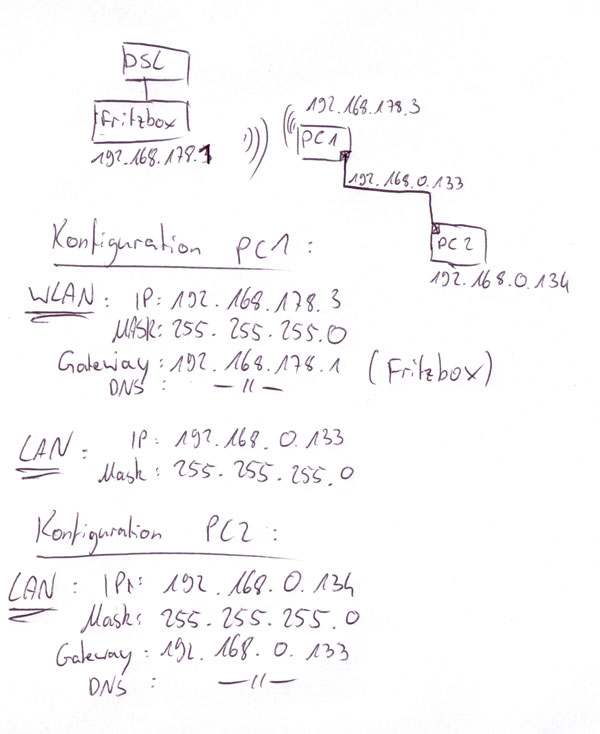 DSL
Fritzbox
192.168.178.1
192.168.178.3
PC1
192.168.0.133
PC2
192.168.0.134
Konfiguration PC1:
WLAN: IP: 192.168.178.3
MASK: 255.255.255.0
Gateway: 192.168.178.1 (Fritzbox)
DNS : —〃—
LAN: IP: 192.168.0.133
Mask: 255.255.255.0
Konfiguration PC2:
LAN: IP: 192.168.0.134
Mask: 255.255.255.0
Gateway: 192.168.0.133
DNS : —〃—